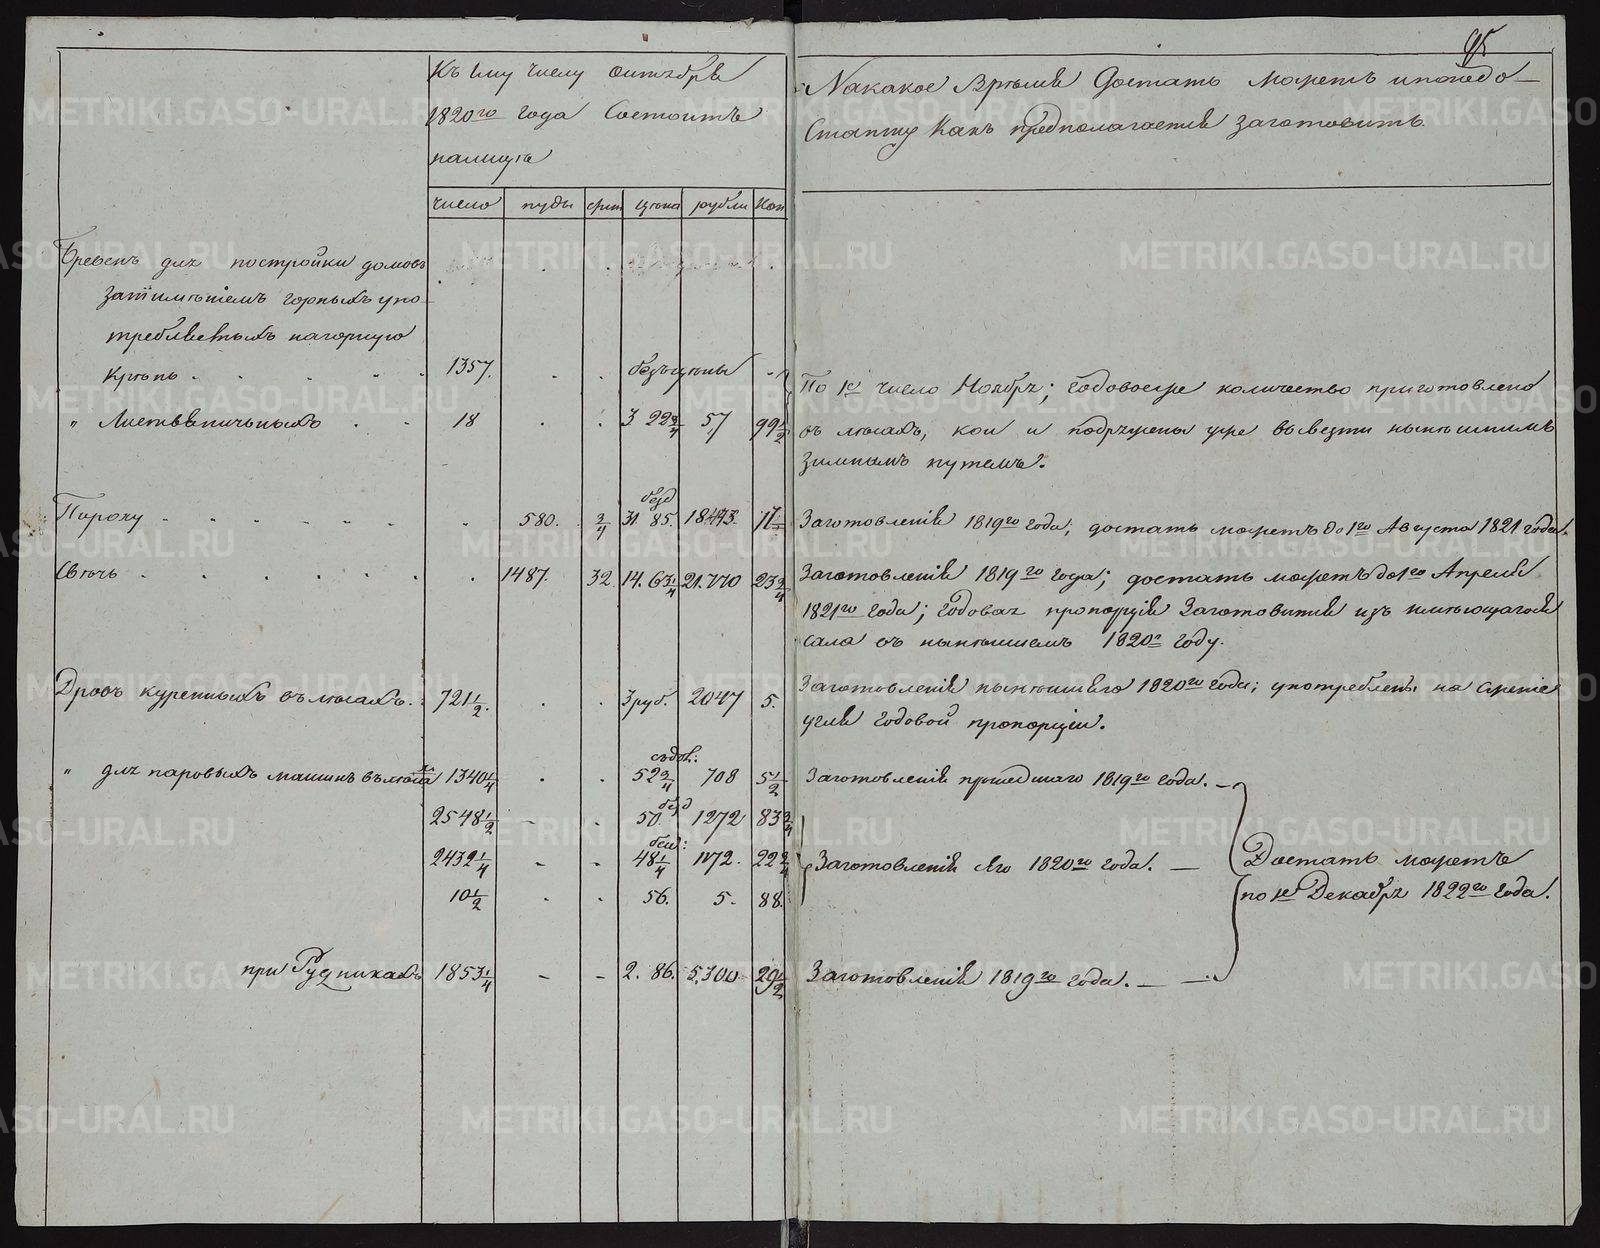 95
Къ 1му числу Октября
1820го года Состоитъ
налицо
Накакое Время Достать можетъ и понедо-
статку Какъ предполагается заготовить
число пуды фун цѣна рубли Коп
Бревенъ для постройки домовъ
заимѣніемъ горныхъ упо-
требляемыхъ нагорную
Крѣпь 1357. безъцѣны
По 1е число Ноября; годовое же количество приготовлено
" Листвяничныхъ 18 3 22 3/4 57 99 1/2
въ лѣсахъ, кои и подряжены уже вывезти нынѣшнимъ
зимнимъ путемъ.
Пороху 580. 3/4 31 85. 18493. 17 Заготовленія 1819го года; достать можетъ до 1го Августа 1821 года.
Свѣчь 1487. 32 14. 63 1/4 21.770 23 3/4 Заготовленія 1819го года; достать можетъ до 1го Апреля
1821го года; годовая пропорція Заготовится изъ имѣющагося
сала въ нынѣшнемъ 1820м году.
Дровъ куренныхъ въ лѣсахъ. 721 1/2. 3 руб. 2047 5. Заготовленія нынѣшняго 1820го года; употреблены на
угля годовой пропорціи.
" для паровыхъ машинъ въ лѣсахъ 1340 1/4 52 3/4 708 5 1/2 Заготовленія прошедшаго 1819го года.
2548 1/2 50 1272 83 3/4
2432 1/4 48 1/4 1172. 22 3/4 Заготовленія Сего 1820го года. Достать можетъ
10 1/2 56. 5. 88. по 1е Декабря 1822го года.
при Рудникахъ 1853 1/4 2. 86. 5,300 29 1/2 Заготовленія 1819го года.
METRIKI.GASO-URAL.RU